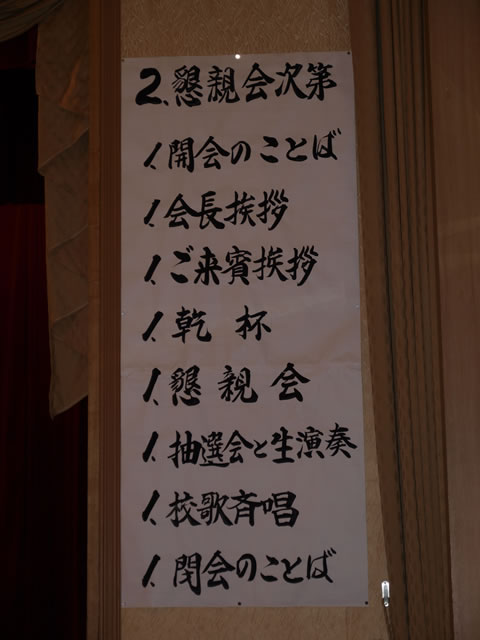 2、懇親会次第
1、開会のことば
1、会長挨拶
1、ご来賓挨拶
1、乾杯
1、懇親会
1、抽選会と生演奏
1、校歌斉唱
1、閉会のことば